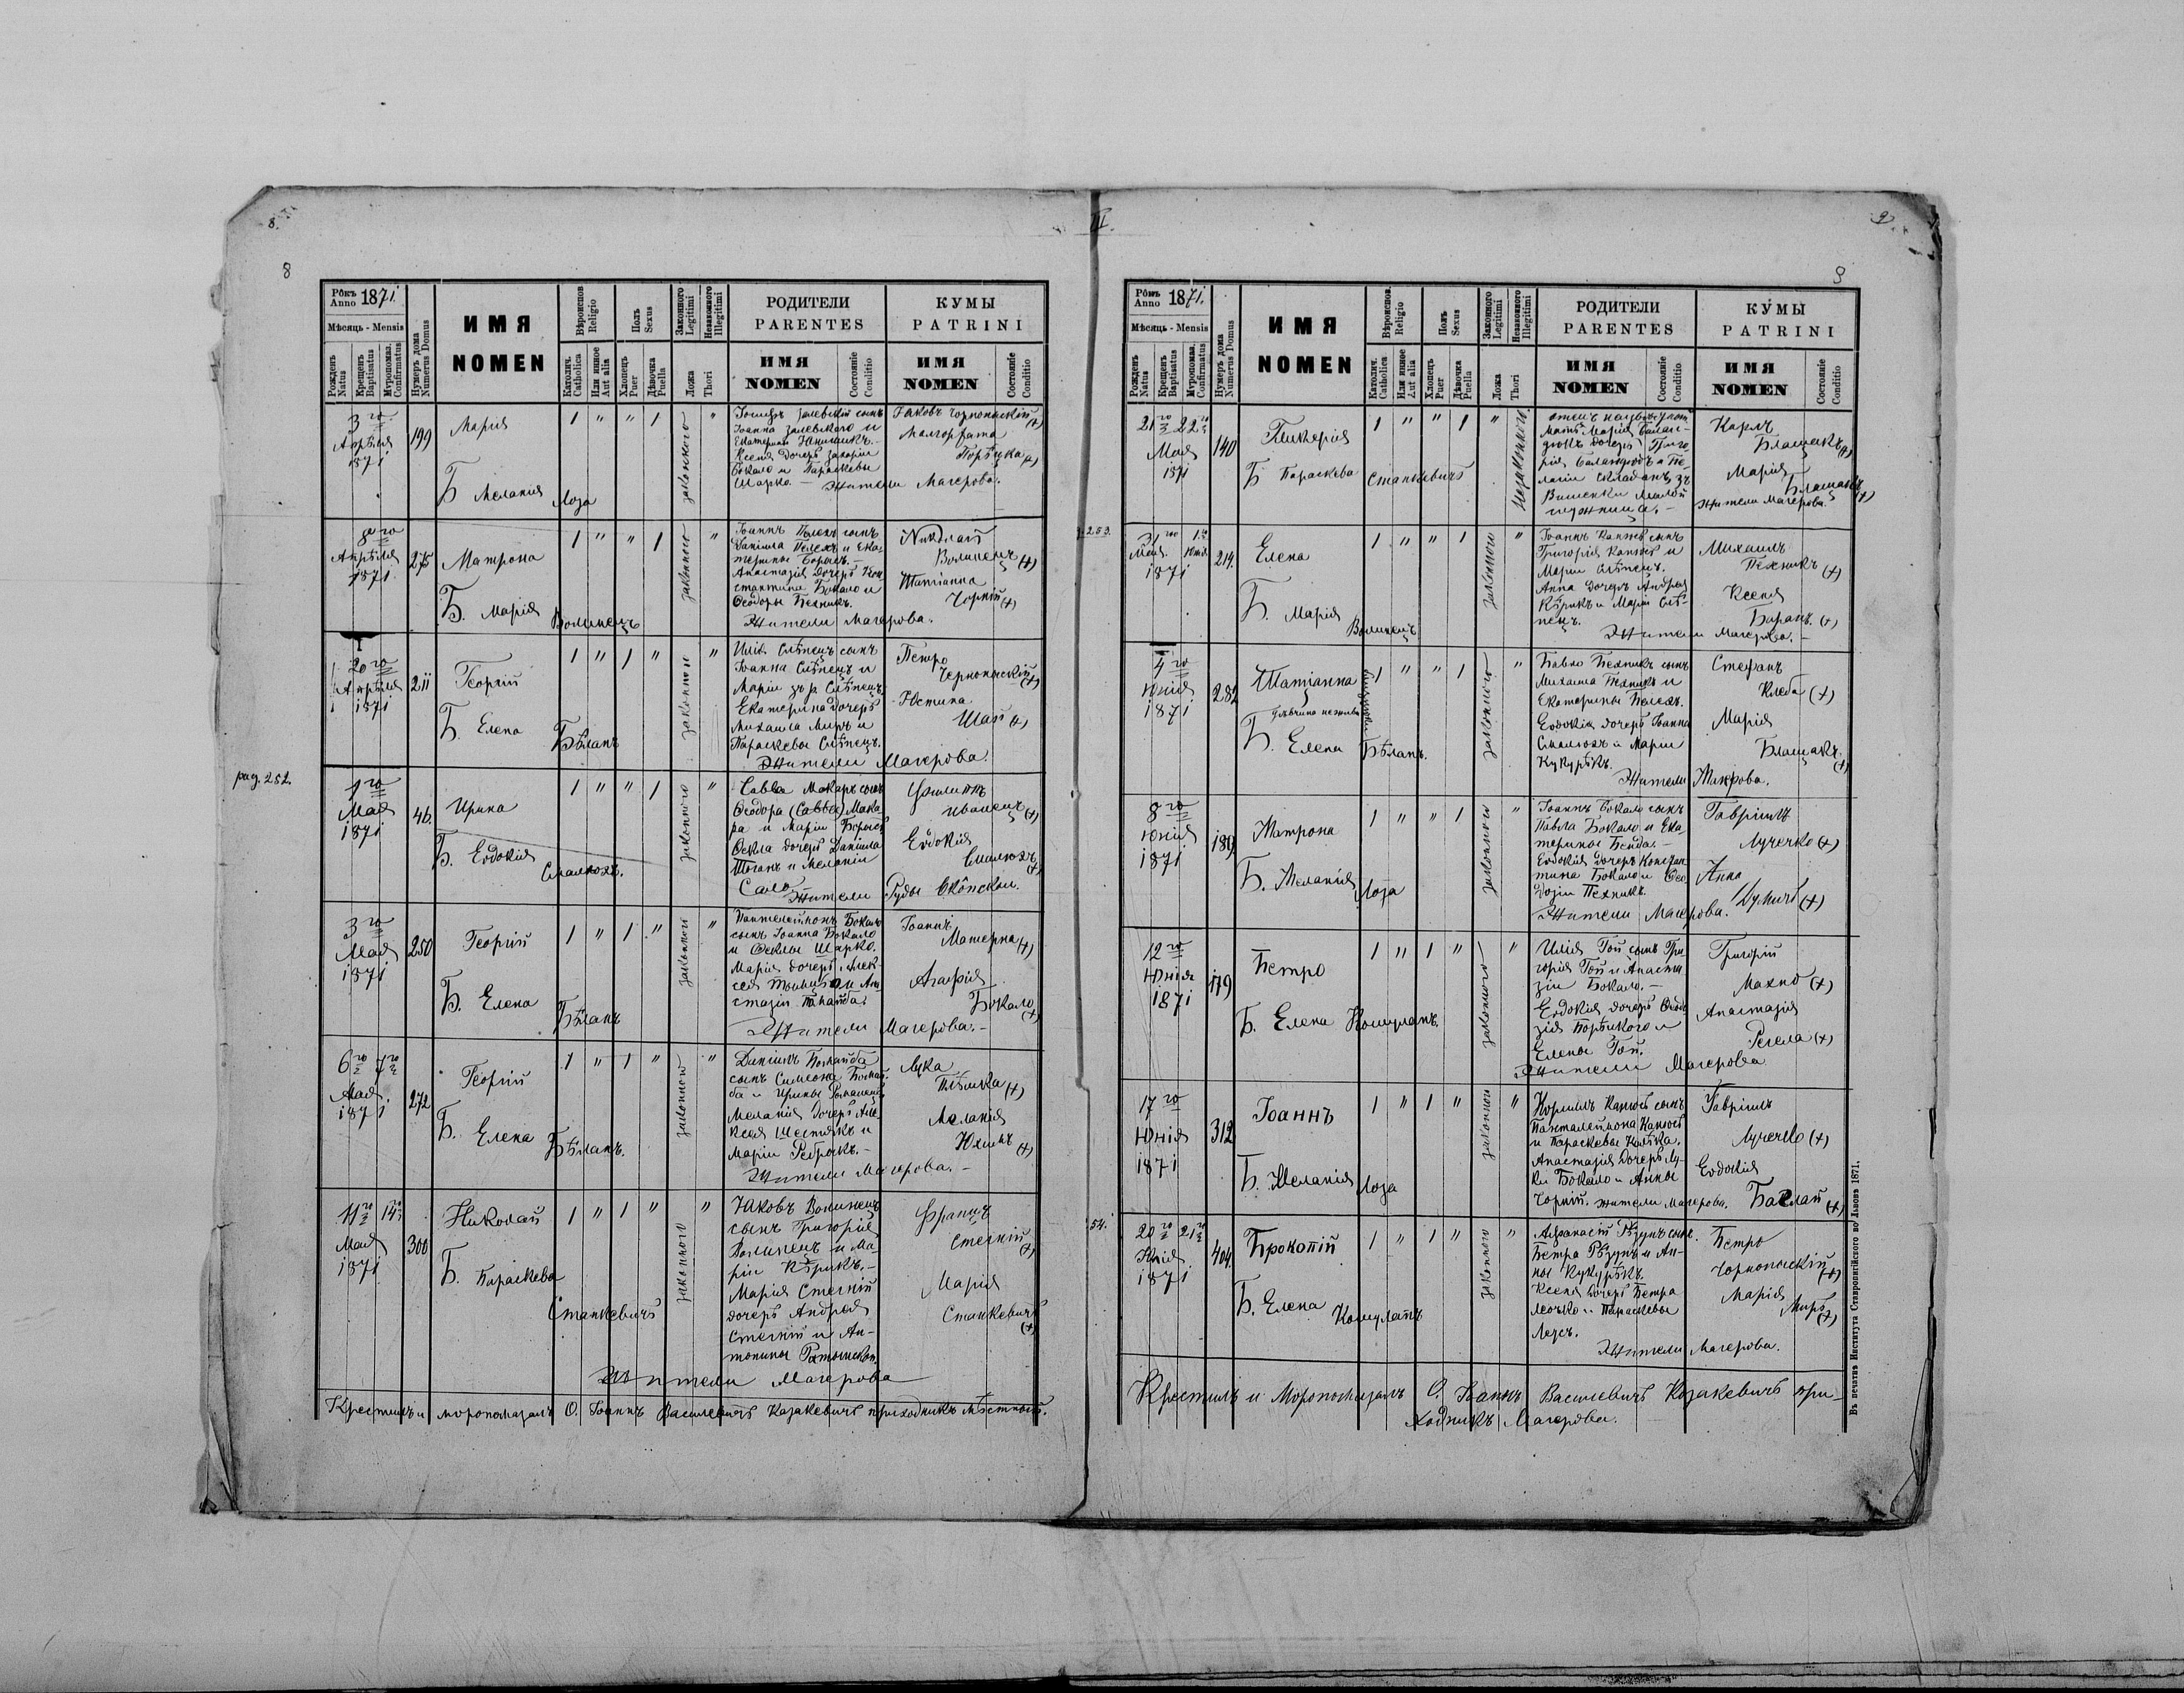 8.
8
Рôкъ Anno 1871.
Мѣсяць - Mensis
Рожденъ Natus
Крещенъ Baptisatus
Мѵропомаз. Confirmatus
Нумеръ дома Numerus Domus
ИМЯ
NOMEN
Вѣроиспов. Religio
Католич. Catholica
Или инное Aut alia
Полъ Sexus
Хлопець Puer
Дѣвочка Puella
Законного Legitimi
Незаконного Illegitimi
Ложа
Thori
РОДИТЕЛИ
PARENTES
ИМЯ
NOMEN
Состоянiе Conditio
КУМЫ
PATRINI
ИМЯ
NOMEN
Состоянiе Conditio
3го
Апрѣля
1871
199
Марія
Б Меланія Лоза
1 " " 1
законного
"
Іоанна Залевского и
Ксенія дочерь Захаріи
Бокало и Параскевы
Шарко. — Жители Магерова.
Яковъ Чорнопыскій (+)
Малгорѣата
8го
Апрѣля
1871
275
Матрона
Б. Марія Волинець
1 " " 1
законного
"
Іоаннъ Пелехъ сынъ
Даніила Пелехъ и Ека-
терины Борысъ. —
Анастазія дочерь Кон-
стантина Бокало и
Ѳеодоры Пехникъ.
Жители Магерова.
Николай
Волинець (+)
Татіанна
Чорній (+)
20го
Апрѣля
1871
211
Георгій
Б. Елена Бѣланъ
1 " 1 "
законного
"
Илія Слѣпець сынъ
Іоанна Слѣпець и
Маріи зъ р. Слѣпець
Екатерина дочерь
Михаила Миръ и
Параскевы Слѣпець.
Жители Магерова.
Петро
Чернопыскій (+)
Юстина
Шай (+)
pag. 252.
1го
Мая
1871
46.
Ирина
Б. Евдокія Смалюхъ.
1 " " 1
законного
"
Савва Макаръ сынъ
Ѳеодора (Савва) Мака-
ра и Маріи Борысъ
Ѳекла дочерь Даніила
и Меланіи
Сало
Жители Руды
Филиппъ
Иванець (+)
Евдокія
Смалюхъ (+)
3го
Мая
1871
250
Георгій
Б. Елена Бѣланъ
1 " 1 "
законного
"
Пантелеймонъ Бокало
сынъ Іоанна Бокало
и Ѳеклы Шарко.
Марія дочерь Алек-
сея и Ана-
стазіи
Жители Магерова. —
Іоаннъ
Матерна (+)
Агафія
Бокало (+)
6го 7го
Мая
1871
272
Георгій
Б. Елена Бѣланъ.
1 " 1 "
законного
"
Даніилъ
сынъ Симеона
и Ирины Романець
Меланія дочерь Але-
ксея Шестякъ и
Маріи Ребрыкъ. —
Жители Магерова. —
Лука
(+)
Меланія
(+)
11го 14го
Мая
1871
300
Николай
Б. Параскева
Станкевичъ
1 " 1 "
законного
"
Яковъ Волинець
сынъ Григорія
Волинець и Ма-
ріи Кѣрикъ. —
Марія Стегній
дочерь Андрея
Стегній и Ан-
тонины
Жители Магерова
Францъ
Стегній (+)
Марія
Станкевичъ (+)
Крестилъ и мѵропомазалъ О. Іоаннъ Василевичъ Казакевичъ приходникъ мѣстный.
II.
9.
9
Рôкъ Anno 1871.
Мѣсяць - Mensis
Рожденъ Natus
Крещенъ Baptisatus
Мѵропомаз. Confirmatus
Нумеръ дома Numerus Domus
ИМЯ
NOMEN
Вѣроиспов. Religio
Католич. Catholica
Или инное Aut alia
Полъ Sexus
Хлопець Puer
Дѣвочка Puella
Законного Legitimi
Незаконного Illegitimi
Ложа
Thori
РОДИТЕЛИ
PARENTES
ИМЯ
NOMEN
Состоянiе Conditio
КУМЫ
PATRINI
ИМЯ
NOMEN
Состоянiе Conditio
21го 22го
Мая
1871
140
Гликерія
Б Параскева Станкевичъ
1 " " 1
"
Незаконного
мать Марія
дочерь Григо-
рія и Пе-
лагіи зъ
Вишенки Малой
Карлъ
Блащакъ (+)
Марія
Блащакъ (+)
Жители Магерова.
p. 253.
31го 1го
Мая Юнія
1871
214.
Елена
Б. Марія Волинець
1 " " 1
законного
"
Іоаннъ Канюсъ сынъ
Григорія Канюсъ и
Маріи Слѣпець.
Анна дочерь Андрея
Кѣрикъ и Маріи Слѣ-
пець.
Жители Магерова. —
Михаилъ
Пехникъ (+)
Ксенія
Баранъ. (+)
4го
Юнія
1871
282
Татіанна
Б. Елена Бѣланъ.
1 " " 1
законного
"
Павло Пехникъ сынъ
Михаила Пехникъ и
Екатерины Пелехъ.
Евдокія дочерь Іоанна
Смалюхъ и Маріи
Кукурѣкъ.
Жители Магерова.
Стефанъ
Клеба (+)
Марія
Блащакъ. (+)
8го
Юнія
1871
189
Матрона
Б. Меланія Лоза
1 " " 1
законного
"
Іоаннъ Бокало сынъ
Павла Бокало и Ека-
терины Бенда. —
Евдокія дочерь Констан-
тина Бокало и Ѳео-
дозіи Пехникъ.
Жители Магерова.
Гавріилъ
Лученко (+)
Анна
(+)
12го
Юнія
1871
179
Петро
Б. Елена Кошуланъ.
1 " 1 "
законного
"
Илія Гой сынъ Гри-
горія Гой и Анаста-
зіи Бокало. —
Евдокія дочерь Ѳеодо-
зія Порѣцкого и
Елены Гой.
Жители Магерова
Григорій
Махно (+)
Анастазія
Регела (+)
17го
Юнія
1871
312
Іоаннъ
Б. Меланія Лоза
1 " 1 "
законного
"
Корнилъ Канюсъ сынъ
Панталеймона Канюсъ
и Параскевы
Анастазія дочерь Лу-
ки Бокало и Анны
Чорній. Жители Магерова.
Гавріилъ
Лученко (+)
Евдокія
Баклай (+)
54.
20го 21го
Юнія
1871
404.
Прокопій
Б. Елена Кошуланъ
1 " 1 "
законного
"
Афанасій Рѣзунъ сынъ
Петра Рѣзунъ и Ан-
ны Кукурѣкъ.
Ксенія дочерь Петра
и Параскевы
Жители Магерова.
Петро
Чорнопыскій (+)
Марія
Миръ (+)
Крестилъ и Мѵропомазалъ О. Іоаннъ Василевичъ Козакевичъ при-
ходникъ Магерова.
Въ печатнѣ Института Ставропигійского во Львовѣ 1871.